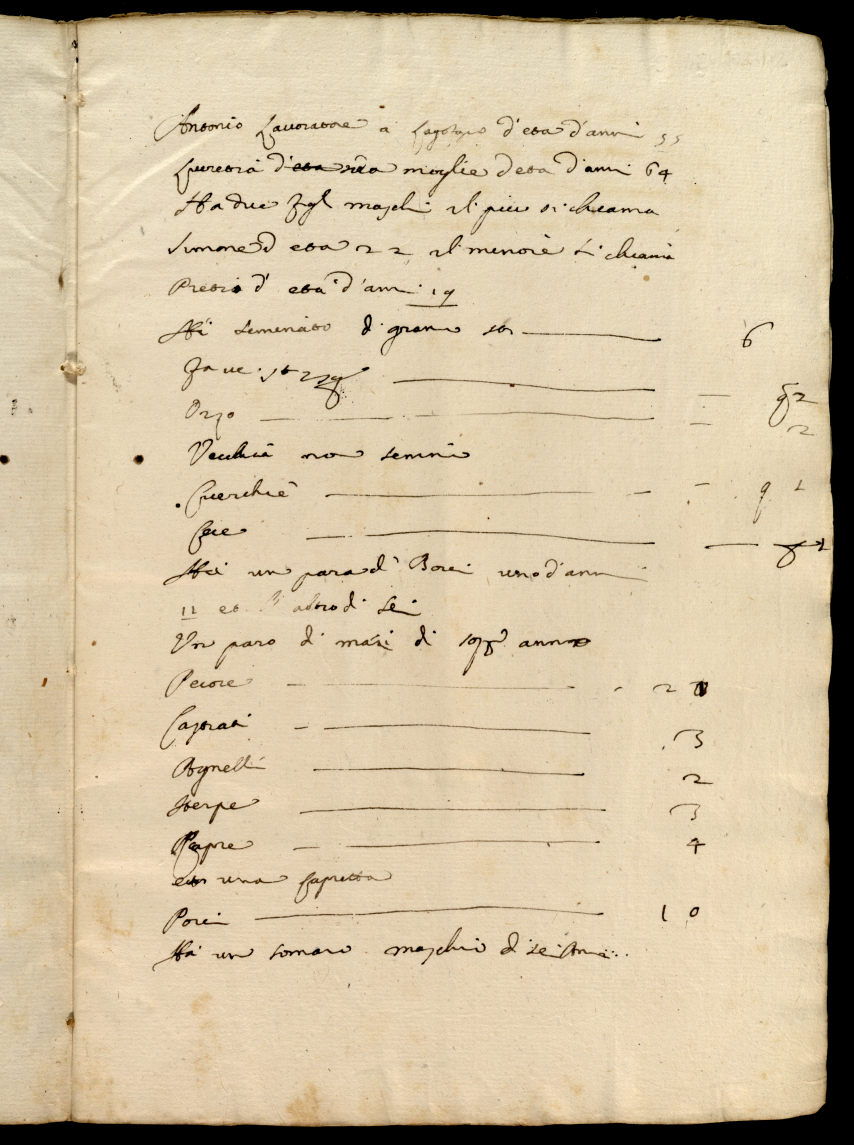 Antonio Lavoratore a d'eta d'anni 55
Lucretia d'eta sua moglie d'eta d'anni 64
Ha due figl maschi il piu si chiama
Simone d eta 22 il minore si chiama
Pietro d' eta d'anni 19
Ha seminato di grano st 6
Fave st 2
Orzo 2
Vecchia non semina
Cicerchie q 1
Cece
Ha un paro di Bovi uno d'anni
11 et l'altro di sei
Un paro di di anno
Pecore 20
Castrati 3
Agnelli 2
Sterpe 3
Capre 4
et una Capretta
Porci 10
Ha un somaro maschio di sei Anni